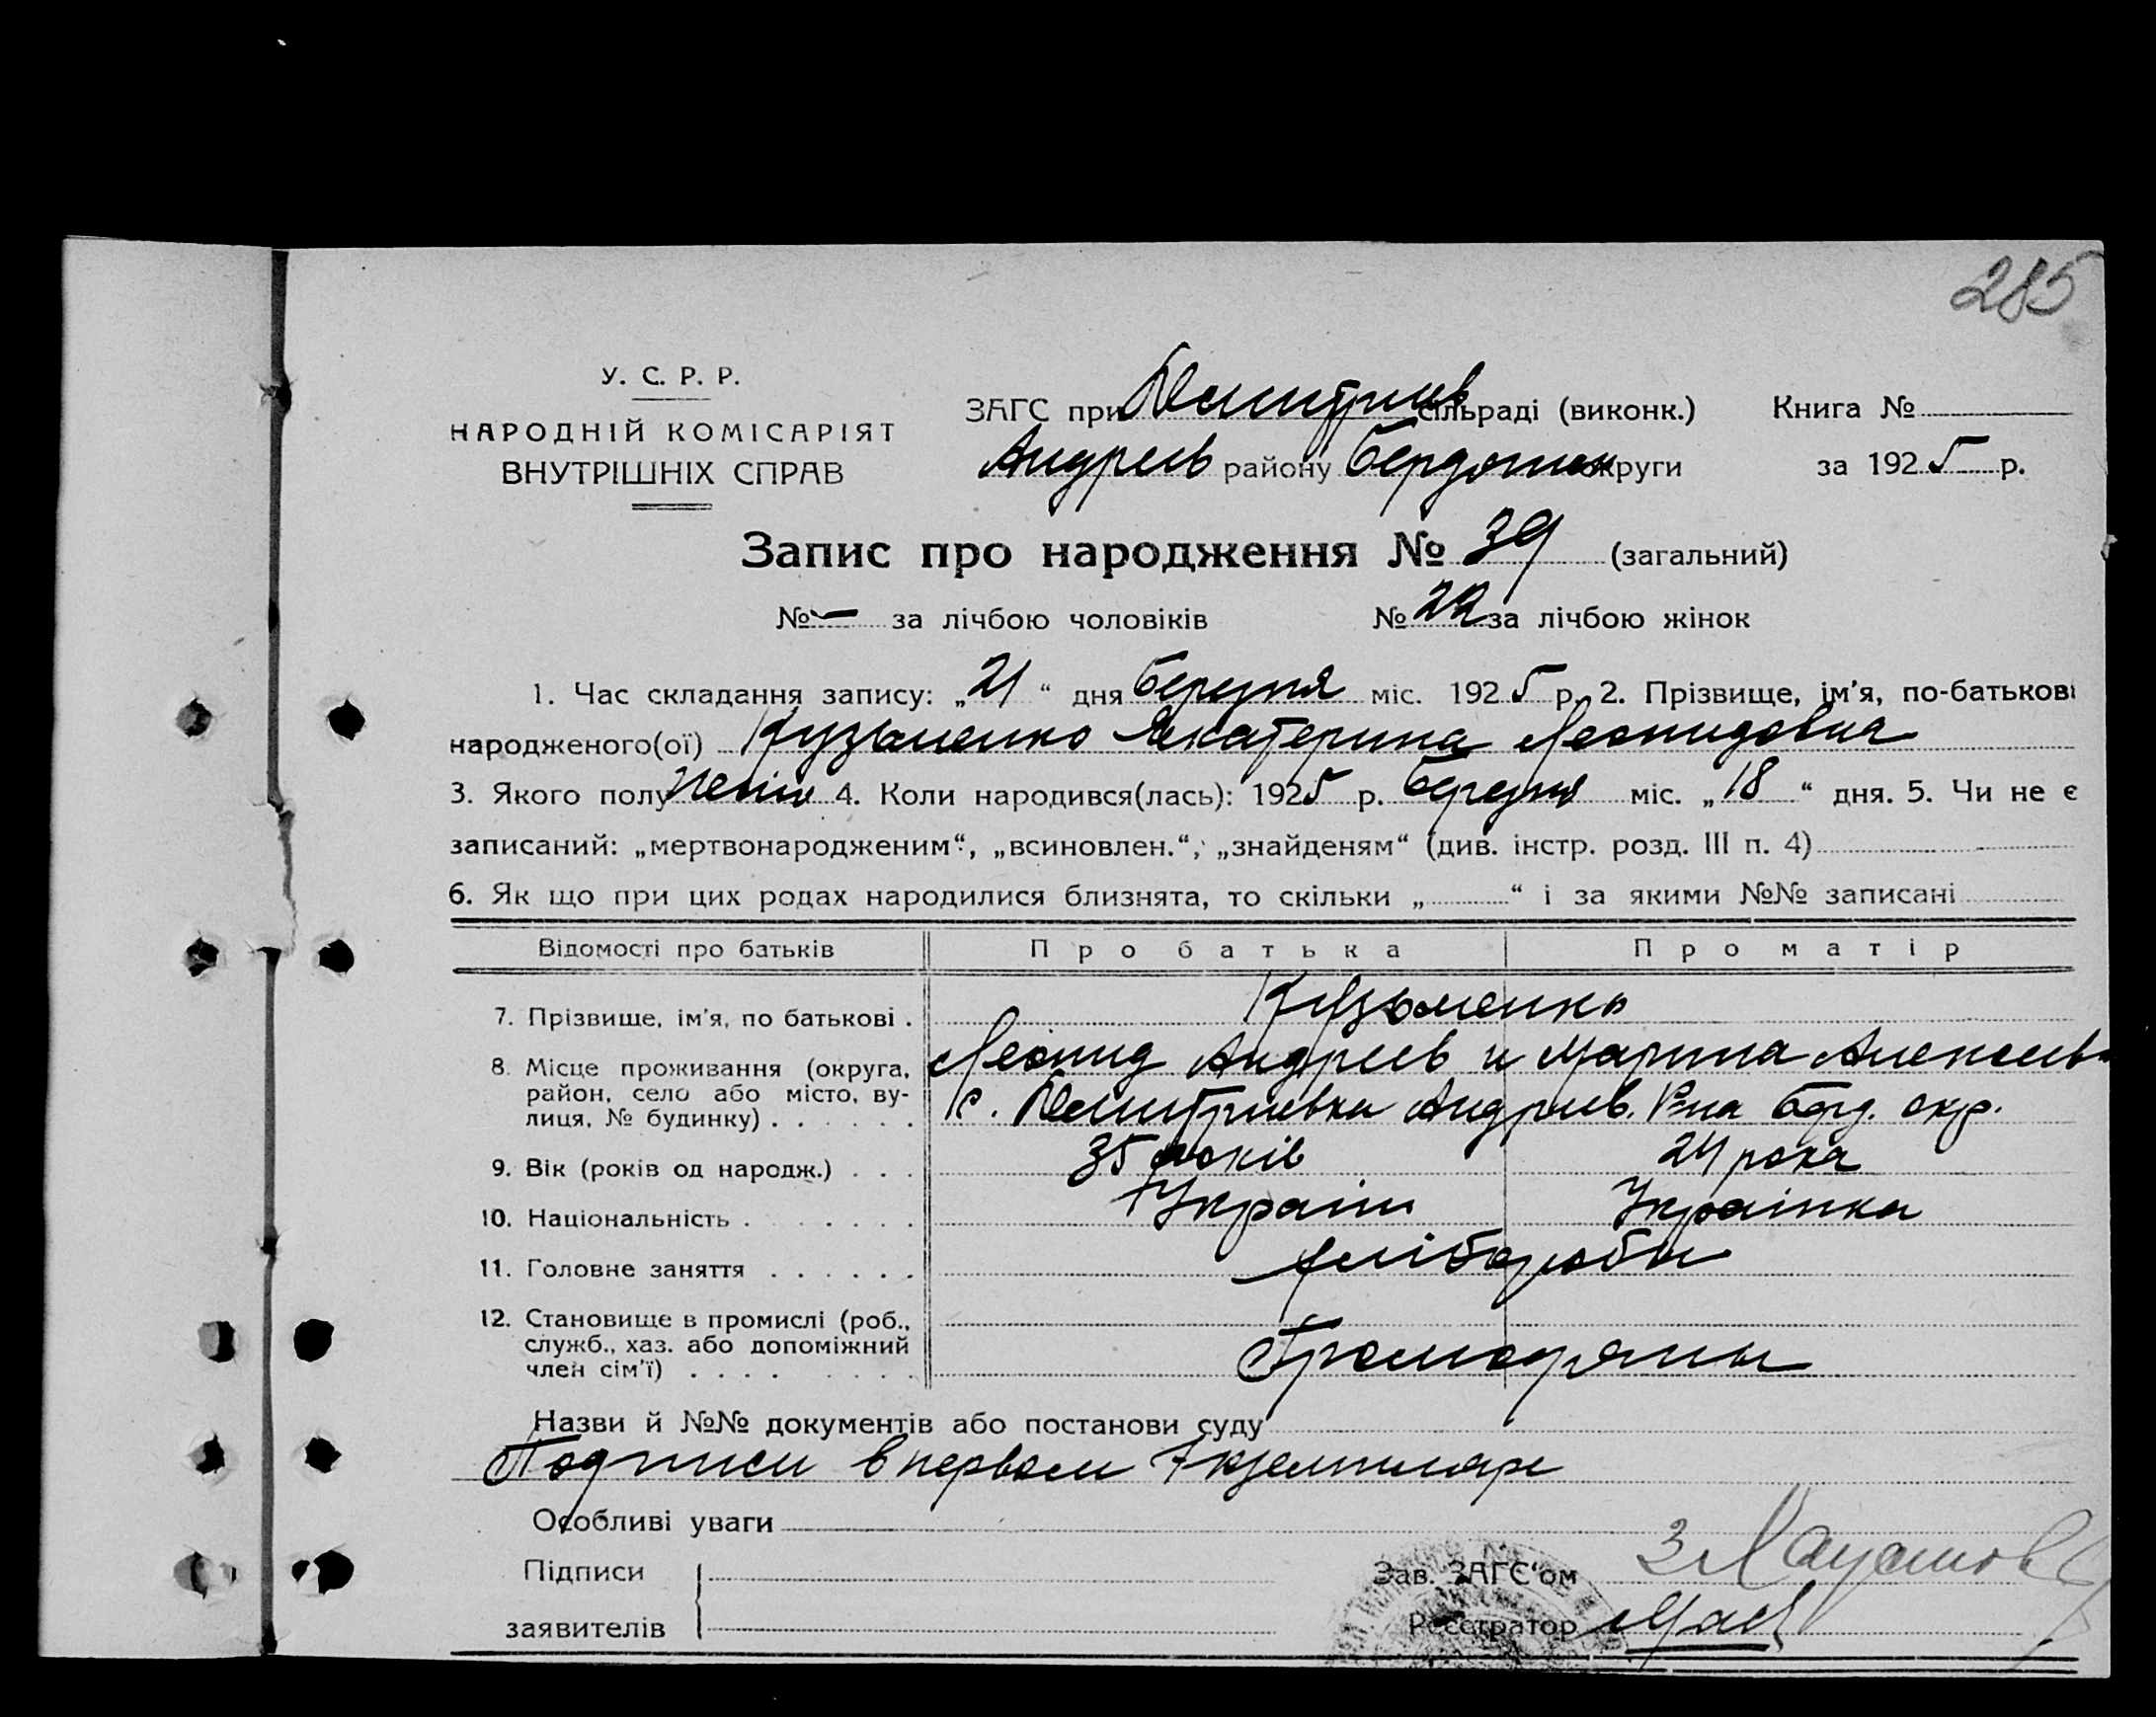 285
У. С. Р. Р.
НАРОДНІЙ КОМІСАРІЯТ
ВНУТРІШНІХ СПРАВ
ЗАГС при Дмитриев сільраді (виконк.) Книга №
Андреев району Бердянск округи за 1925 р.
Запис про народження № 39 (загальний)
№ — за лічбою чоловіків № 22 за лічбою жінок
1. Час складання запису: „21“ дня березня міс. 1925 р. 2. Прізвище, ім'я, по-батькові
народженого(ої) Кузьменко Екатерина Леонидовна
3. Якого полу жені 4. Коли народився(лась): 1925 р. березня міс. „18“ дня. 5. Чи не є
записаний: „мертвонародженим“, „всиновлен.“, „знайденям“ (див. інстр. розд. III п. 4)
6. Як що при цих родах народилися близнята, то скільки „ “ і за якими №№ записані
Відомості про батьків Про батька Про матір
7. Прізвище, ім'я, по батькові . Кузьменко
Леонид Андреев и Марина Алексеев
8. Місце проживання (округа,
район, село або місто, ву-
лиця, № будинку) . . . . . . с. Дмитриевка Андреев. Р-на Берд. окр.
9. Вік (років од народж.) . . . 35 років 24 рока
10. Національність . . . . . . . Україн Українка
11. Головне заняття . . . . . . хліборобы
12. Становище в промислі (роб.,
служб., хаз. або допоміжний
член сім'ї) . . . . . . . . Громодяны
Назви й №№ документів або постанови суду
Подписи в первом Экземпляре
Особливі уваги
Підписи
заявителів
Зав. ЗАГС'ом
Реєстратор